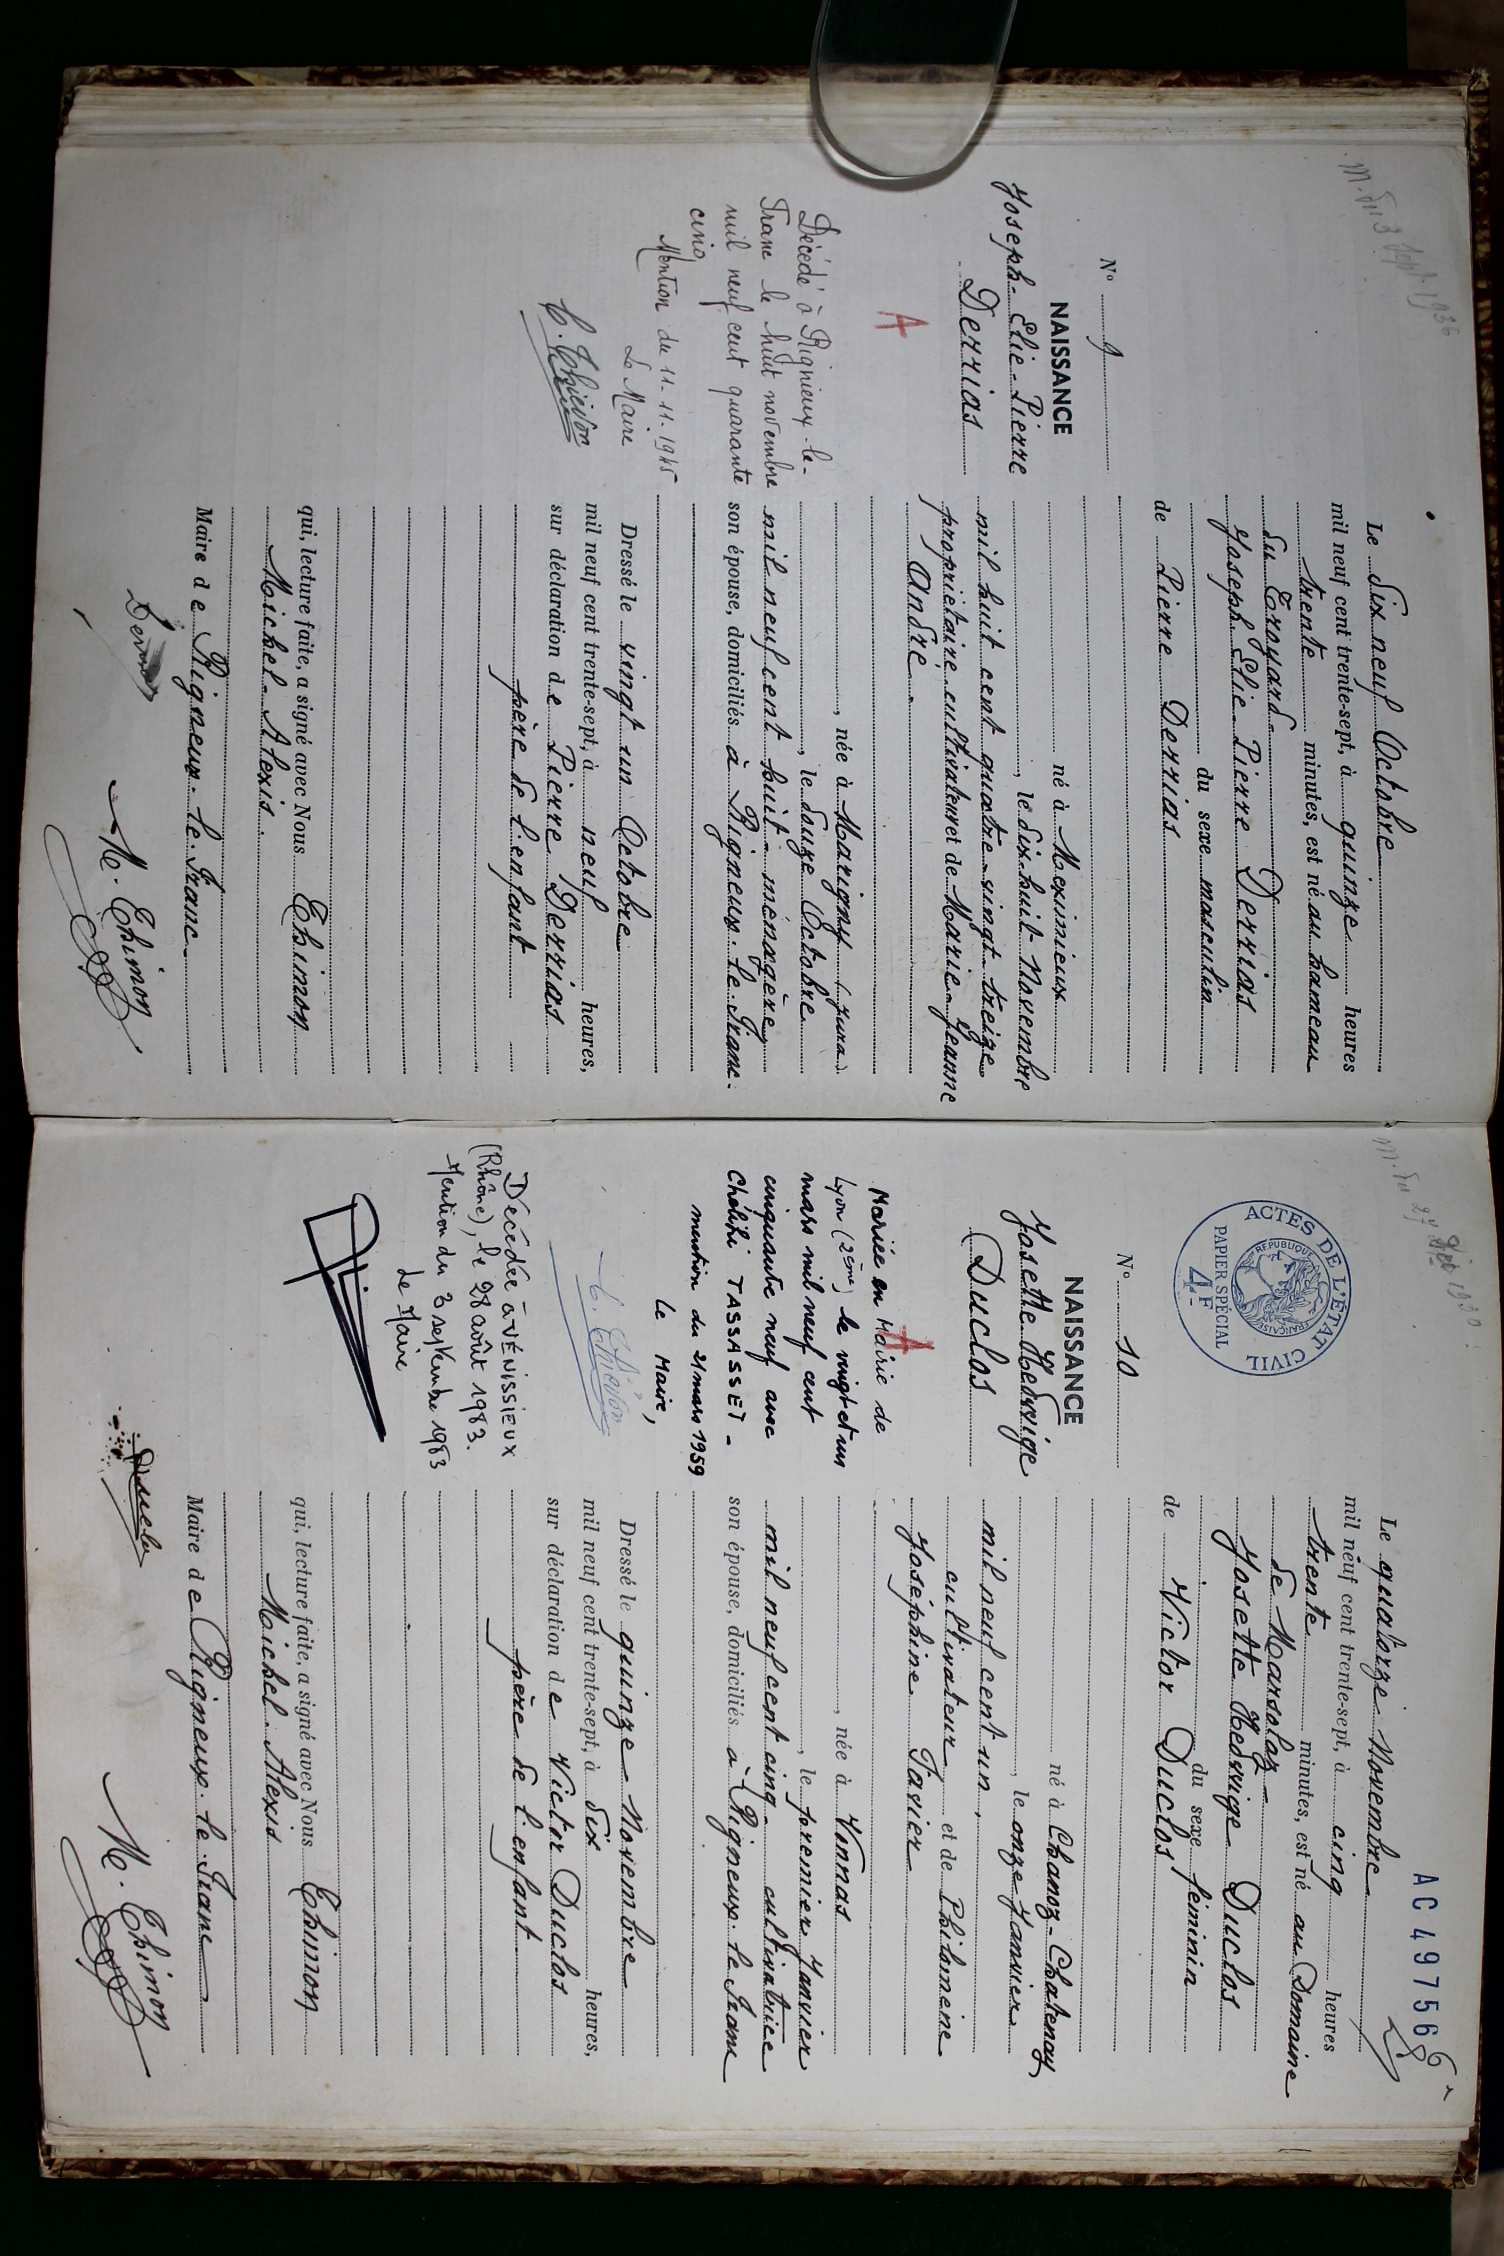 N° 9
NAISSANCE
Joseph-Elie-Pierre
Derrias
A
Décédé à Rignieux-le-
Franc le huit novembre
mil neuf cent quarante
cinq
Mention du 11.11.1945
Le Maire
Le Dix neuf Octobre
mil neuf cent trente-sept, à quinze heures
trente minutes, est né au hameau
du Croyard
Joseph Elie Pierre Derrias
du sexe masculin
de Pierre Derrias
né à Meximieux
, le dix-huit Novembre
mil huit cent quatre-vingt-treize
propriétaire cultivateur et de Marie-Jeanne
André.
, née à Marigny (Jura)
, le douze Octobre
mil neuf cent huit - ménagère
son épouse, domiciliés à Rigneux-le-Franc.
Dressé le vingt un Octobre
mil neuf cent trente-sept, à neuf heures,
sur déclaration de Pierre Derrias
père de l'enfant
qui, lecture faite, a signé avec Nous Thimon
Michel-Alexis.
Maire de Rigneux-le-Franc
Derrias
M. Thimon
ACTES DE L'ÉTAT CIVIL
RÉPUBLIQUE FRANÇAISE
PAPIER SPÉCIAL
4F
N° 10
NAISSANCE
Josette Hedwige
Duclos
A
Mariée en Mairie de
Lyon (2ème) le vingt et un
mars mil neuf cent
cinquante neuf avec
Chélifi TASSASSET -
mention du 21 mars 1959
Le Maire,
Décédée à VÉNISSIEUX
(Rhône), le 28 août 1983.
Mention du 3 septembre 1983
Le Maire
AC497566
Le quatorze Novembre
mil neuf cent trente-sept, à cinq heures
trente minutes, est né au Domaine
de Marsolaz -
Josette Hedwige Duclos
du sexe féminin
de Victor Duclos
né à Chanoz-Chatenay
, le onze Janvier
mil neuf cent un,
cultivateur et de Philomène
Joséphine Tavier
, née à Vonnas
, le premier Janvier
mil neuf cent cinq - cultivatrice
son épouse, domiciliés à Rigneux-le-Franc
Dressé le quinze Novembre
mil neuf cent trente-sept, à dix heures,
sur déclaration de Victor Duclos
père de l'enfant
qui, lecture faite, a signé avec Nous Thimon
Michel-Alexis
Maire de Rigneux-le-Franc
Duclos
M. Thimon